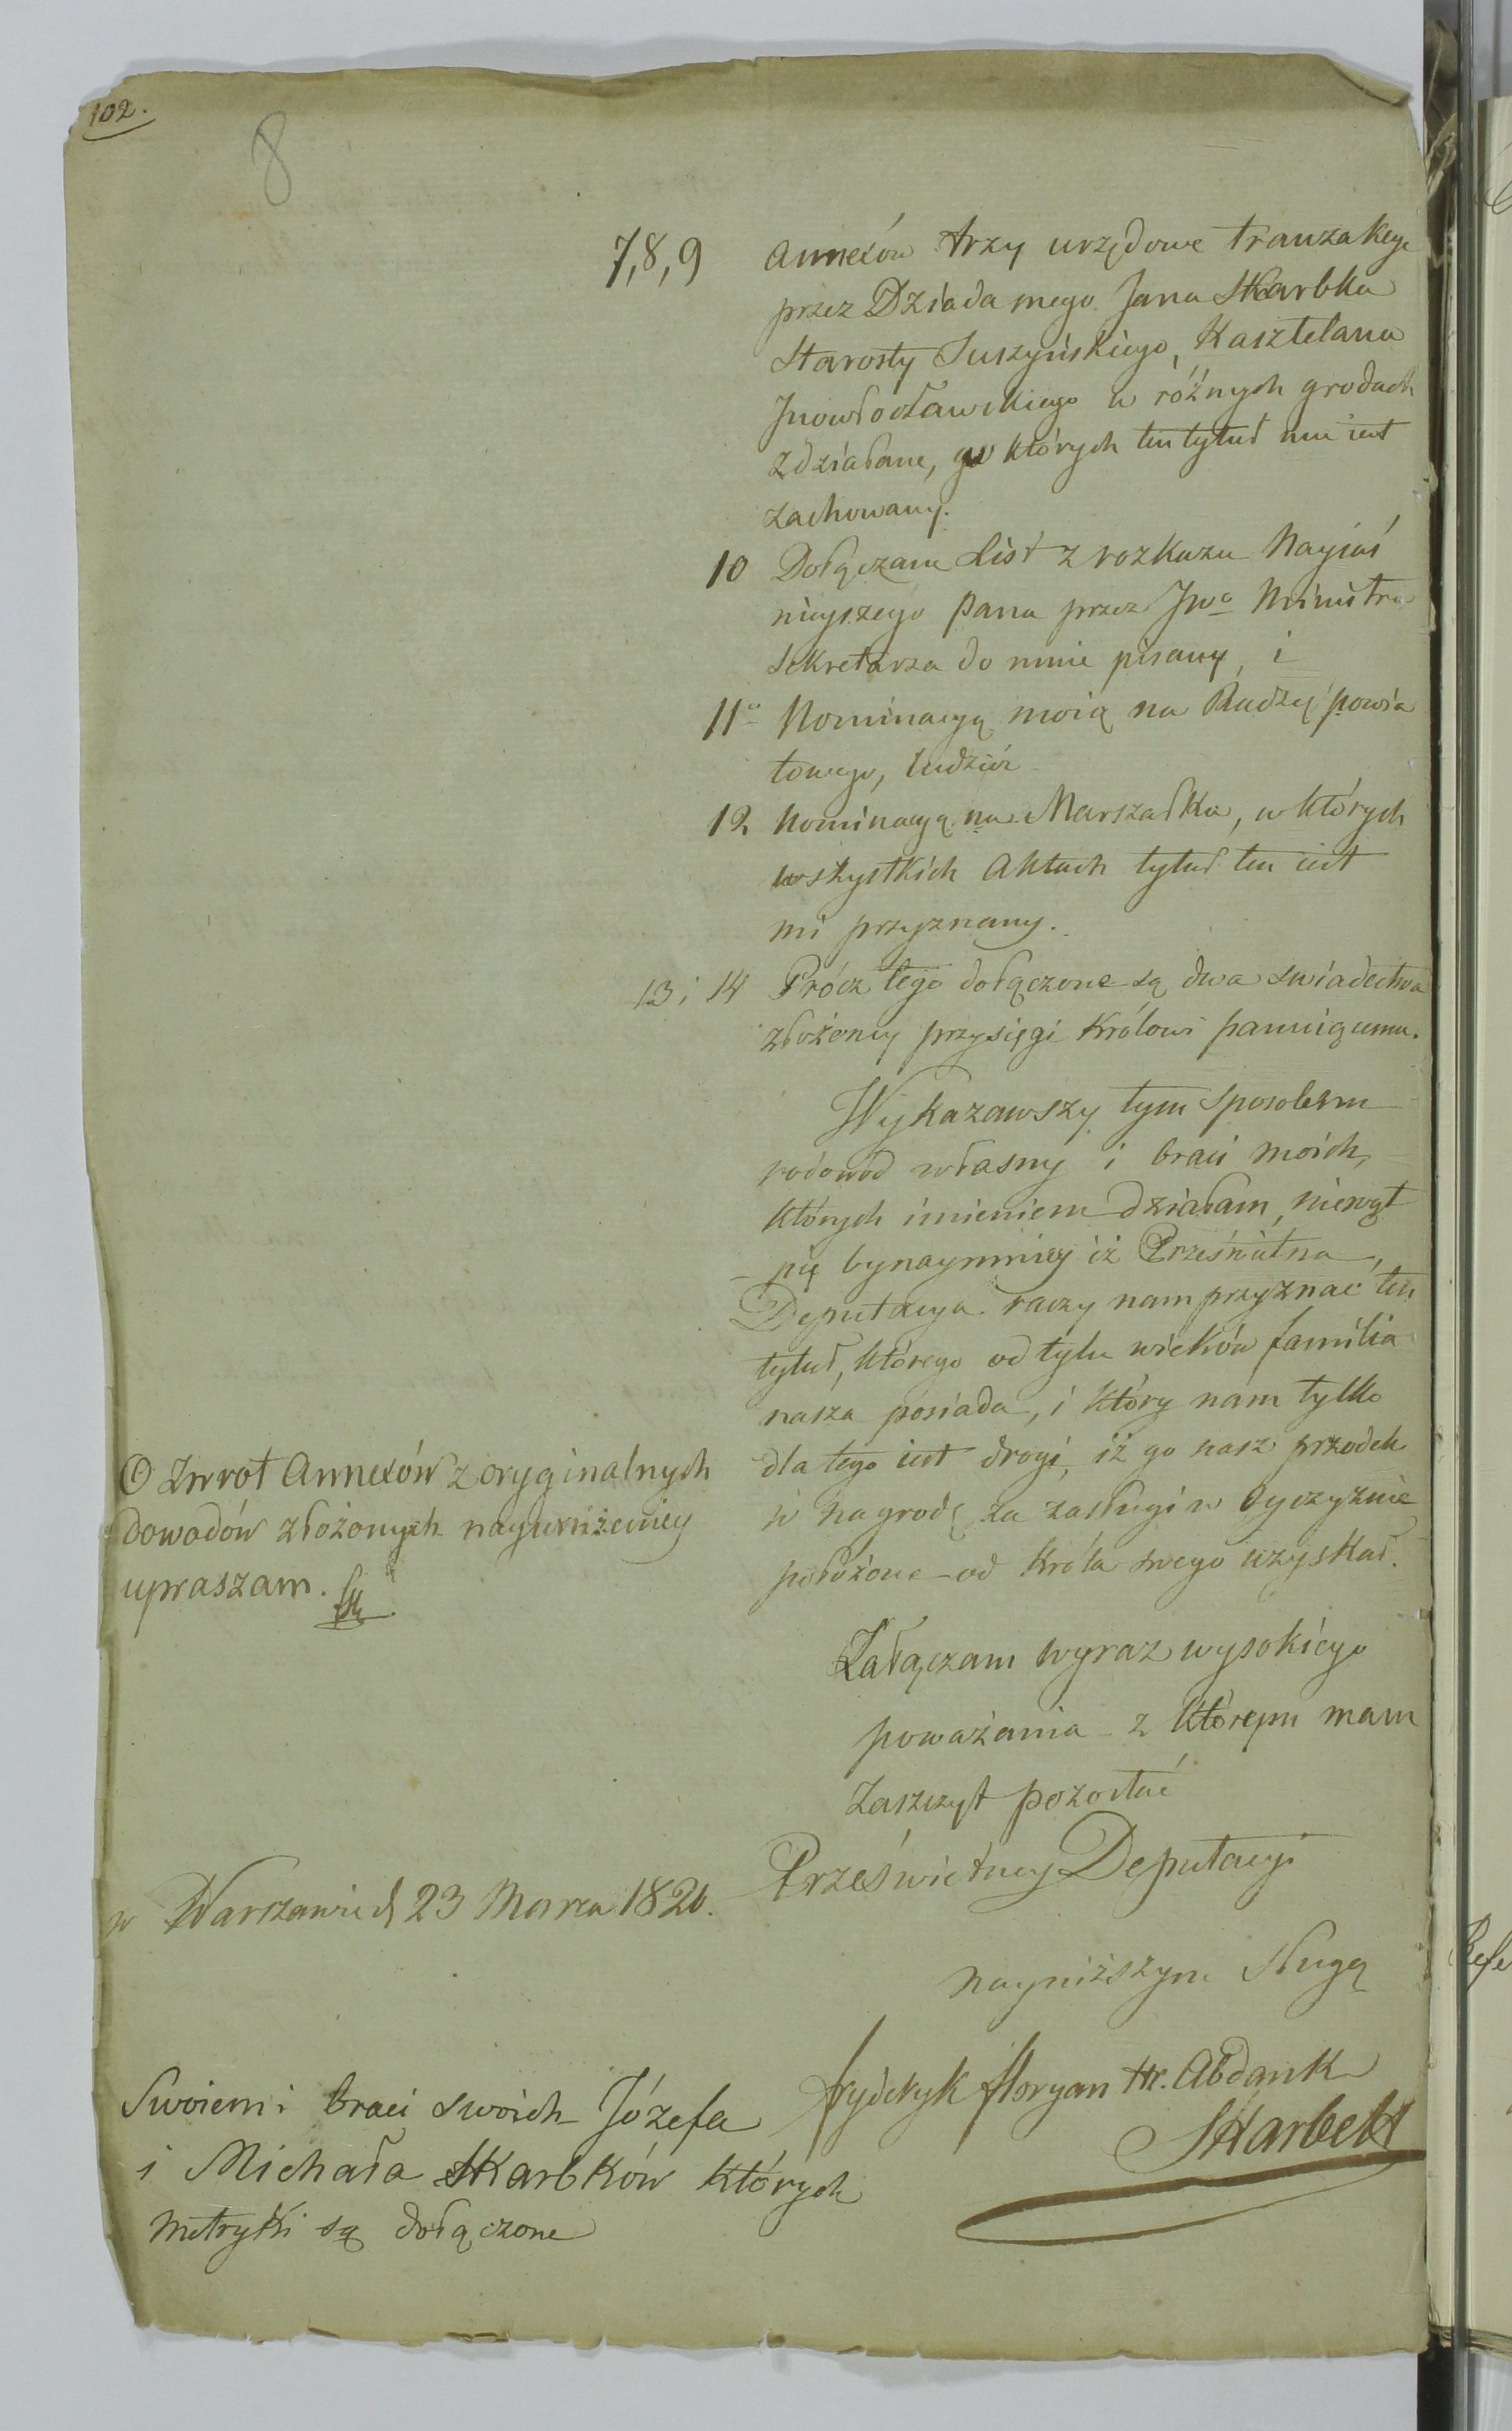 102.
8
7, 8, 9 Annexów trzy urzędowe tranzakcye
przez Dziada mego Jana Skarbka
Starosty Suszyńskiego, Kasztelana
Jnowłocławskiego w różnych grodach
zdziałane, w których ten tytuł mu iest
zachowany.
10 Dołączam List z rozkazu Nayiaś
nieyszego Pana przez Jwo Ministra
Sekretarza do mnie pisany, i
11o Nominacyą moią na Radzcę powia
towego, tudzież
12 Nominacyą na Marszałka, w których
wszystkich Aktach tytuł ten iest
mi przyznany.
13 i 14 Prócz tego dołączone są dwa swiadectwa
złożoney przysięgi Królowi panuiącemu.
Wykazawszy tym sposobem
rodowód własny i braci moich,
których imieniem działam, niewąt
- pię bynaymniey iż Prześwietna
Deputacya raczy nam przyznać ten
tytuł, którego od tylu wieków familia
nasza posiada, i który nam tylko
dla tego iest drogi, iż go nasz przodek
w nagrodę za zasługi w Oyczyznie
położone od Króla swego uzyskał.
O Zwrot Annexów z oryginalnych
dowodów złożonych nayuniżeniey
upraszam.
Załączam wyraz wysokiego
poważania z którym mam
zaszczyt pozostać
Prześwietney Deputacyi
w Warszawie d 23 Marca 1820.
nayniższym Sługą
Frydryk Floryan Hr. Abdank
Skarbek
Swoiem i braci swoich Józefa
i Michała Skarbków których
metryki są dołączone